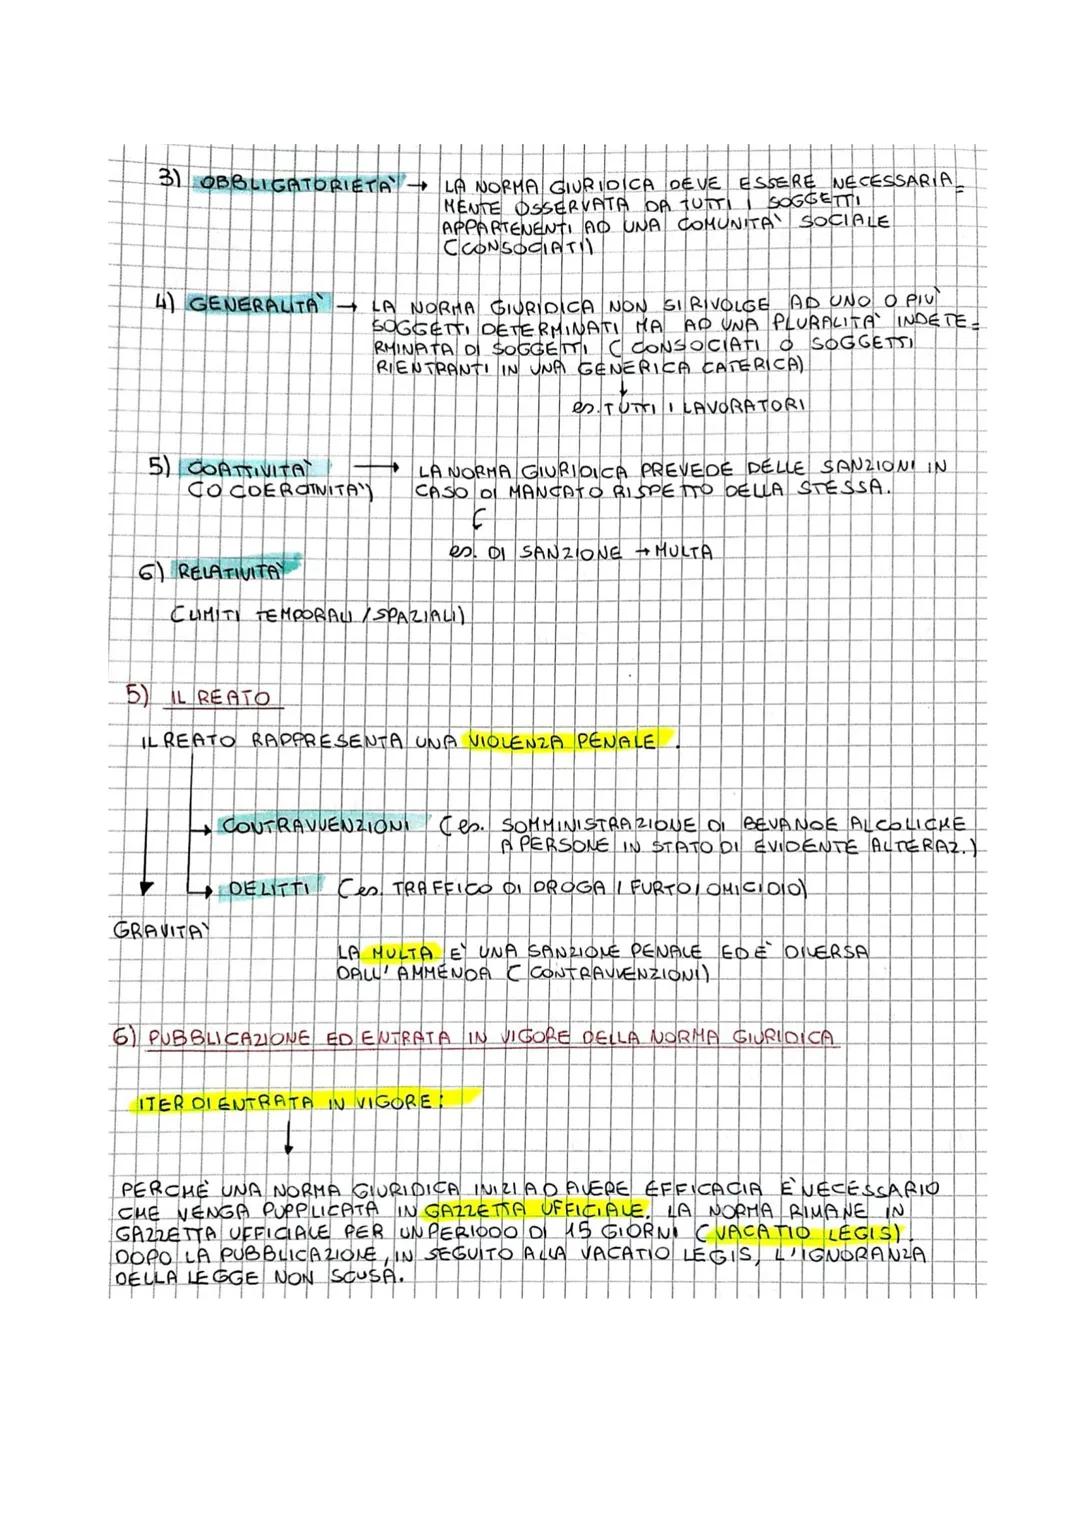 3) OBBLIGATORIETA' → LA NORMA GIURIDICA DEVE ESSERE NECESSARIA=
MENTE OSSERVATA DA TUTTI I SOGGETTI
APPARTENENTI AD UNA COMUNITA' SOCIALE
(CONSOCIATI)
4) GENERALITA' → LA NORMA GIURIDICA NON SI RIVOLGE AD UNO O PIU'
SOGGETTI DETERMINATI MA AD UNA PLURALITA' INDETE=
RMINATA DI SOGGETTI (CONSOCIATI O SOGGETTI
RIENTRANTI IN UNA GENERICA CATERICA)
↓
es. TUTTI I LAVORATORI
5) COATTIVITA' → LA NORMA GIURIDICA PREVEDE DELLE SANZIONI IN
(O COERCITIVITA') CASO DI MANCATO RISPETTO DELLA STESSA.
es. DI SANZIONE → MULTA
6) RELATIVITA'
(LIMITI TEMPORALI / SPAZIALI)
5) IL REATO
IL REATO RAPPRESENTA UNA VIOLENZA PENALE.
→ CONTRAVVENZIONI (es. SOMMINISTRAZIONE DI BEVANDE ALCOLICHE
A PERSONE IN STATO DI EVIDENTE ALTERAZ.)
→ DELITTI (es. TRAFFICO DI DROGA, FURTO, OMICIDIO)
GRAVITA'
LA MULTA E' UNA SANZIONE PENALE ED E' DIVERSA
DALL'AMMENDA (CONTRAVVENZIONI)
6) PUBBLICAZIONE ED ENTRATA IN VIGORE DELLA NORMA GIURIDICA
ITER DI ENTRATA IN VIGORE:
↓
PERCHE' UNA NORMA GIURIDICA INIZI AD AVERE EFFICACIA E' NECESSARIO
CHE VENGA PUPPLICATA IN GAZZETTA UFFICIALE. LA NORMA RIMANE IN
GAZZETTA UFFICIALE PER UN PERIODO DI 15 GIORNI (VACATIO LEGIS).
DOPO LA PUBBLICAZIONE, IN SEGUITO ALLA VACATIO LEGIS, L'IGNORANZA
DELLA LEGGE NON SCUSA.